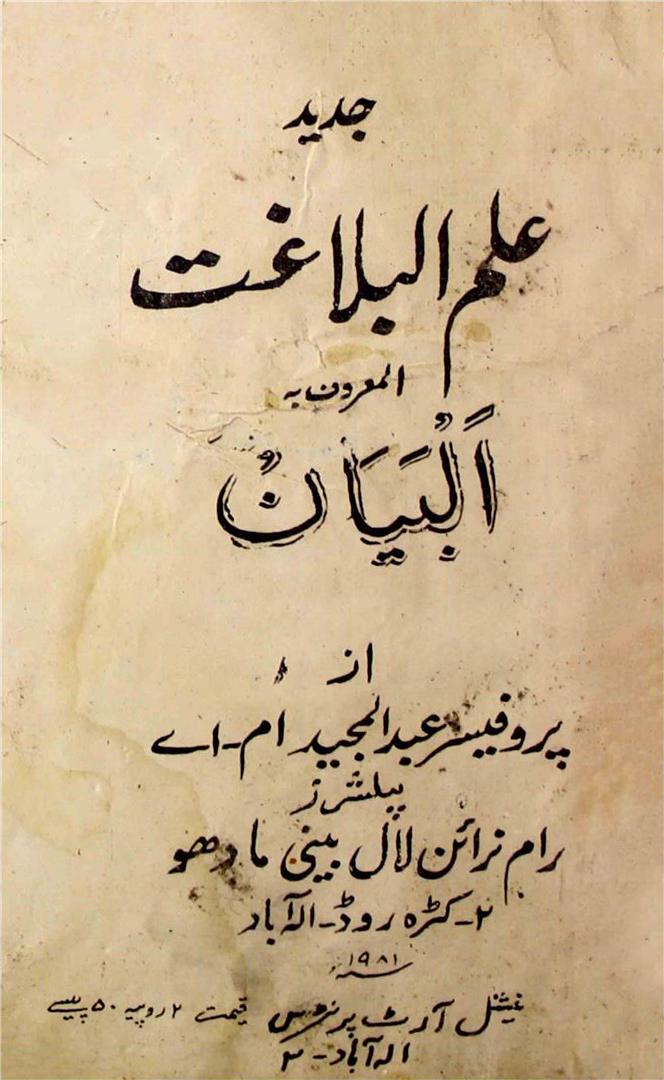 جدید
علم البلاغت
المعروف بہ
اَلْبَیَانُ
از
پروفیسر عبدالمجید ام-اے
پبلشرز
رام نرائن لال بینی مادھو
۲- کٹرہ روڈ- الہ آباد
۱۹۸۱
نیشنل آرٹ پرنٹرس قیمت ۲ روپیہ ۵۰ پیسے
الہ آباد- ۲